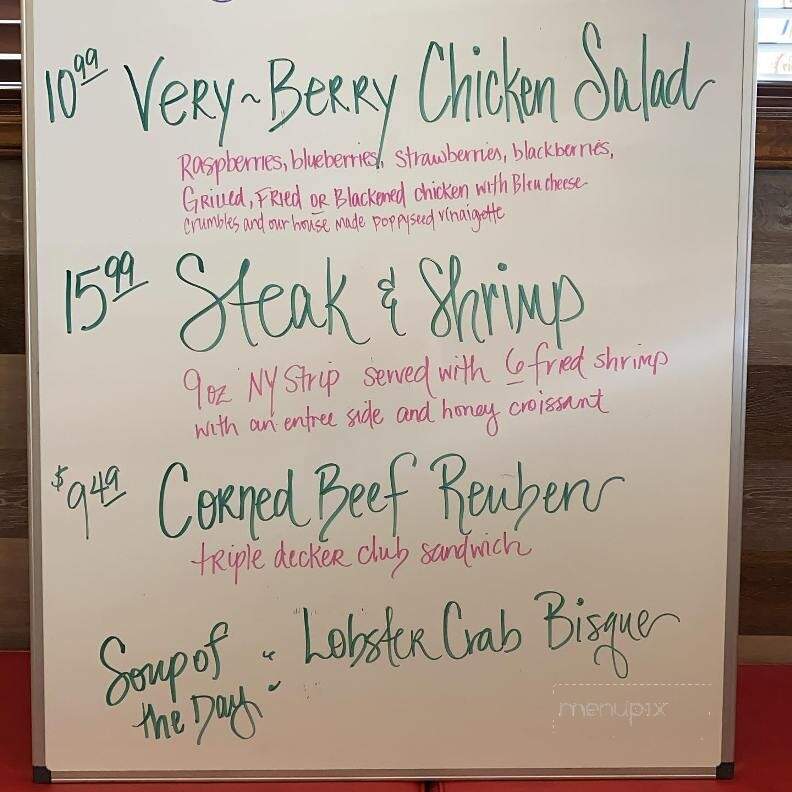 10.99 Very~Berry Chicken Salad
Raspberries, blueberries, strawberries, blackberries,
Grilled, Fried or Blackened chicken with Bleu cheese
crumbles and our house made poppyseed vinaigette
15.99 Steak & Shrimp
9oz NY Strip served with 6 fried shrimp
with an entree side and honey croissant
$9.49 Corned Beef Reuben
triple decker club sandwich
Soup of the Day: Lobster Crab Bisque
menupix